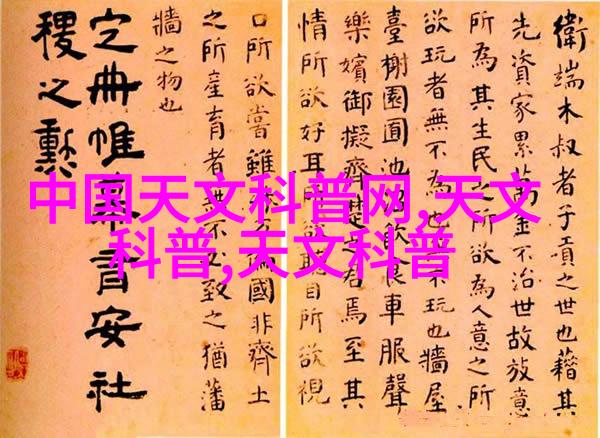 衛端木叔者子貢之世也藉其
先資家累萬金不治世故放意
所為其生民之所欲為人意之所
欲玩者無不為也無不玩也牆屋
臺榭園囿池沼飲食車服聲
樂嬪御擬齊楚之君焉至其
情所欲好耳所欲聽目所欲視
口所欲嘗雖殊方偏國非齊土
之所產育者無不必致之猶藩
牆之物也
定冊帷幕有安社
稷之勳
中国天文科普网,天文
科普,天文科普